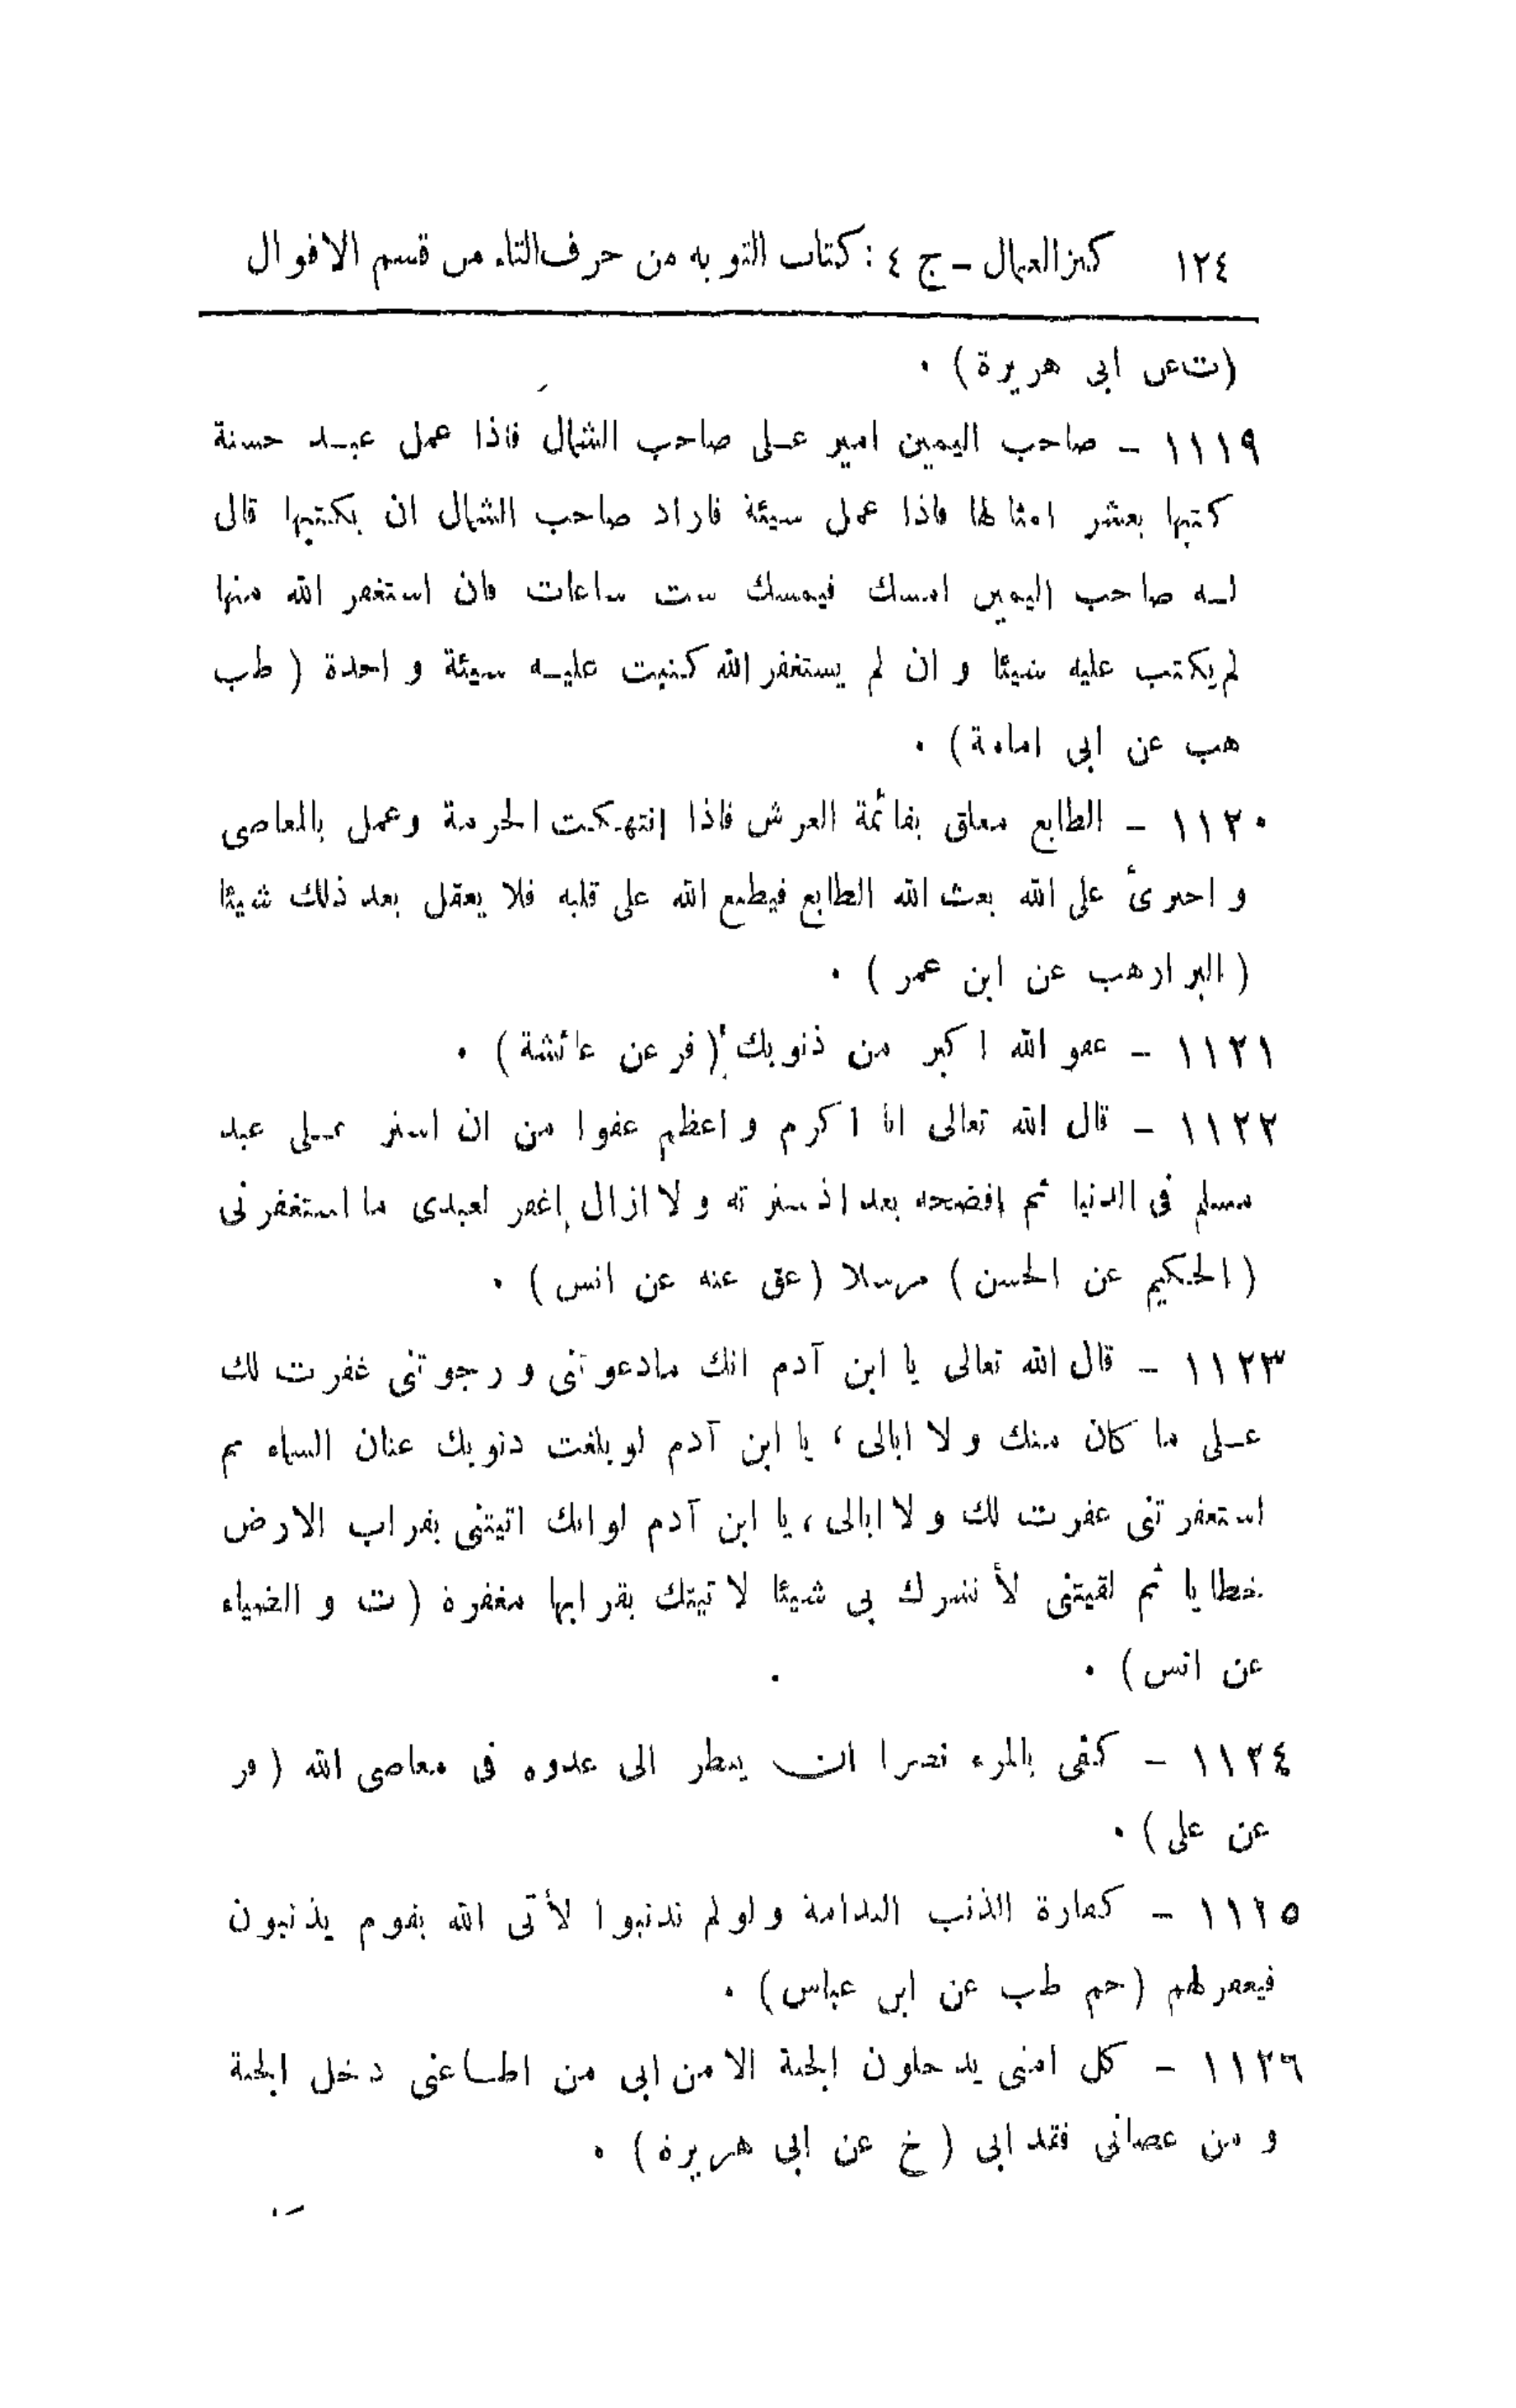 ١٢٤ كنز العمال - ج ٤ : كتاب التوبه من حرف التاء من قسم الاقوال
(ت عن ابى هريرة) .
١١١٩ - صاحب اليمين امير على صاحب الشمال فاذا عمل عبد حسنة
كتبها بعشر امثالها فاذا عمل سيئة فاراد صاحب الشمال ان يكتبها قال
له صاحب اليمين امسك فيمسك ست ساعات فان استغفر الله منها
لم يكتب عليه شيئا و ان لم يستغفر الله كتبت عليه سيئة واحدة (طب
هب عن ابى امامة) .
١١٢٠ - الطابع معلق بقائمة العرش فاذا انتهكت الحرمة وعمل بالمعاصى
و اجترئ على الله بعث الله الطابع فيطبع الله على قلبه فلا يعقل بعد ذلك شيئا
(البزار هب عن ابن عمر) .
١١٢١ - عفو الله اكبر من ذنوبك (فر عن عائشة) .
١١٢٢ - قال الله تعالى انا اكرم و اعظم عفوا من ان استر على عبد
مسلم فى الدنيا ثم افضحه بعد اذ سترته و لا ازال اغفر لعبدى ما استغفرنى
(الحكيم عن الحسن) مرسلا (عق عنه عن انس) .
١١٢٣ - قال الله تعالى يا ابن آدم انك مادعوتنى و رجوتنى غفرت لك
على ما كان منك و لا ابالى ، يا ابن آدم لو بلغت ذنوبك عنان السماء ثم
استغفرتنى غفرت لك و لا ابالى ، يا ابن آدم لو انك اتيتنى بقراب الارض
خطايا ثم لقيتنى لأ تشرك بى شيئا لا تيتك بقرابها مغفرة (ت و الضياء
عن انس) .
١١٢٤ - كفى بالمرء نصرا ان ينظر الى عدوه فى معاصى الله (فر
عن على) .
١١٢٥ - كفارة الذنب الندامة و لو لم تذنبوا لأتى الله بقوم يذنبون
فيغفر لهم (حم طب عن ابن عباس) .
١١٢٦ - كل امتى يدخلون الجنة الا من ابى من اطاعنى دخل الجنة
و من عصانى فقد ابى (خ عن ابى هريرة) .